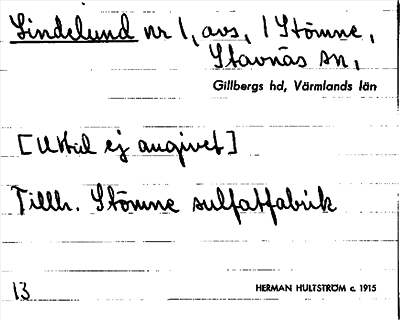 Lindelund nr 1, avs. / Stömne,
Stavnäs sn,
Gillbergs hd, Värmlands län
[Uttal ej angivet]
Tillh. Stömne sulfatfabrik
13 HERMAN HULTSTRÖM c. 1915